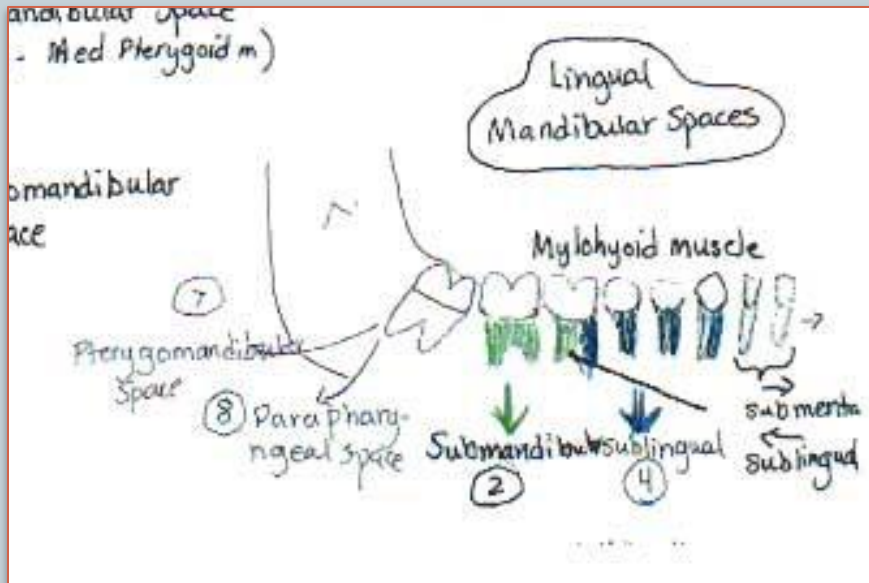 andibular space
- Med Pterygoid m)
Lingual
Mandibular Spaces
omandibular
ace
Mylohyoid muscle
7
Pterygomandibular
Space
8 Parapharyn-
ngeal space
Submandibu
2
sublingual
4
submenta
sublingual